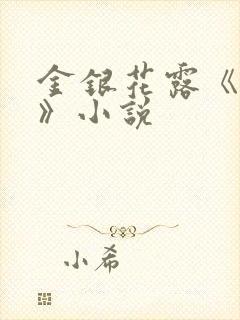 金銀花露《
》小說
小希